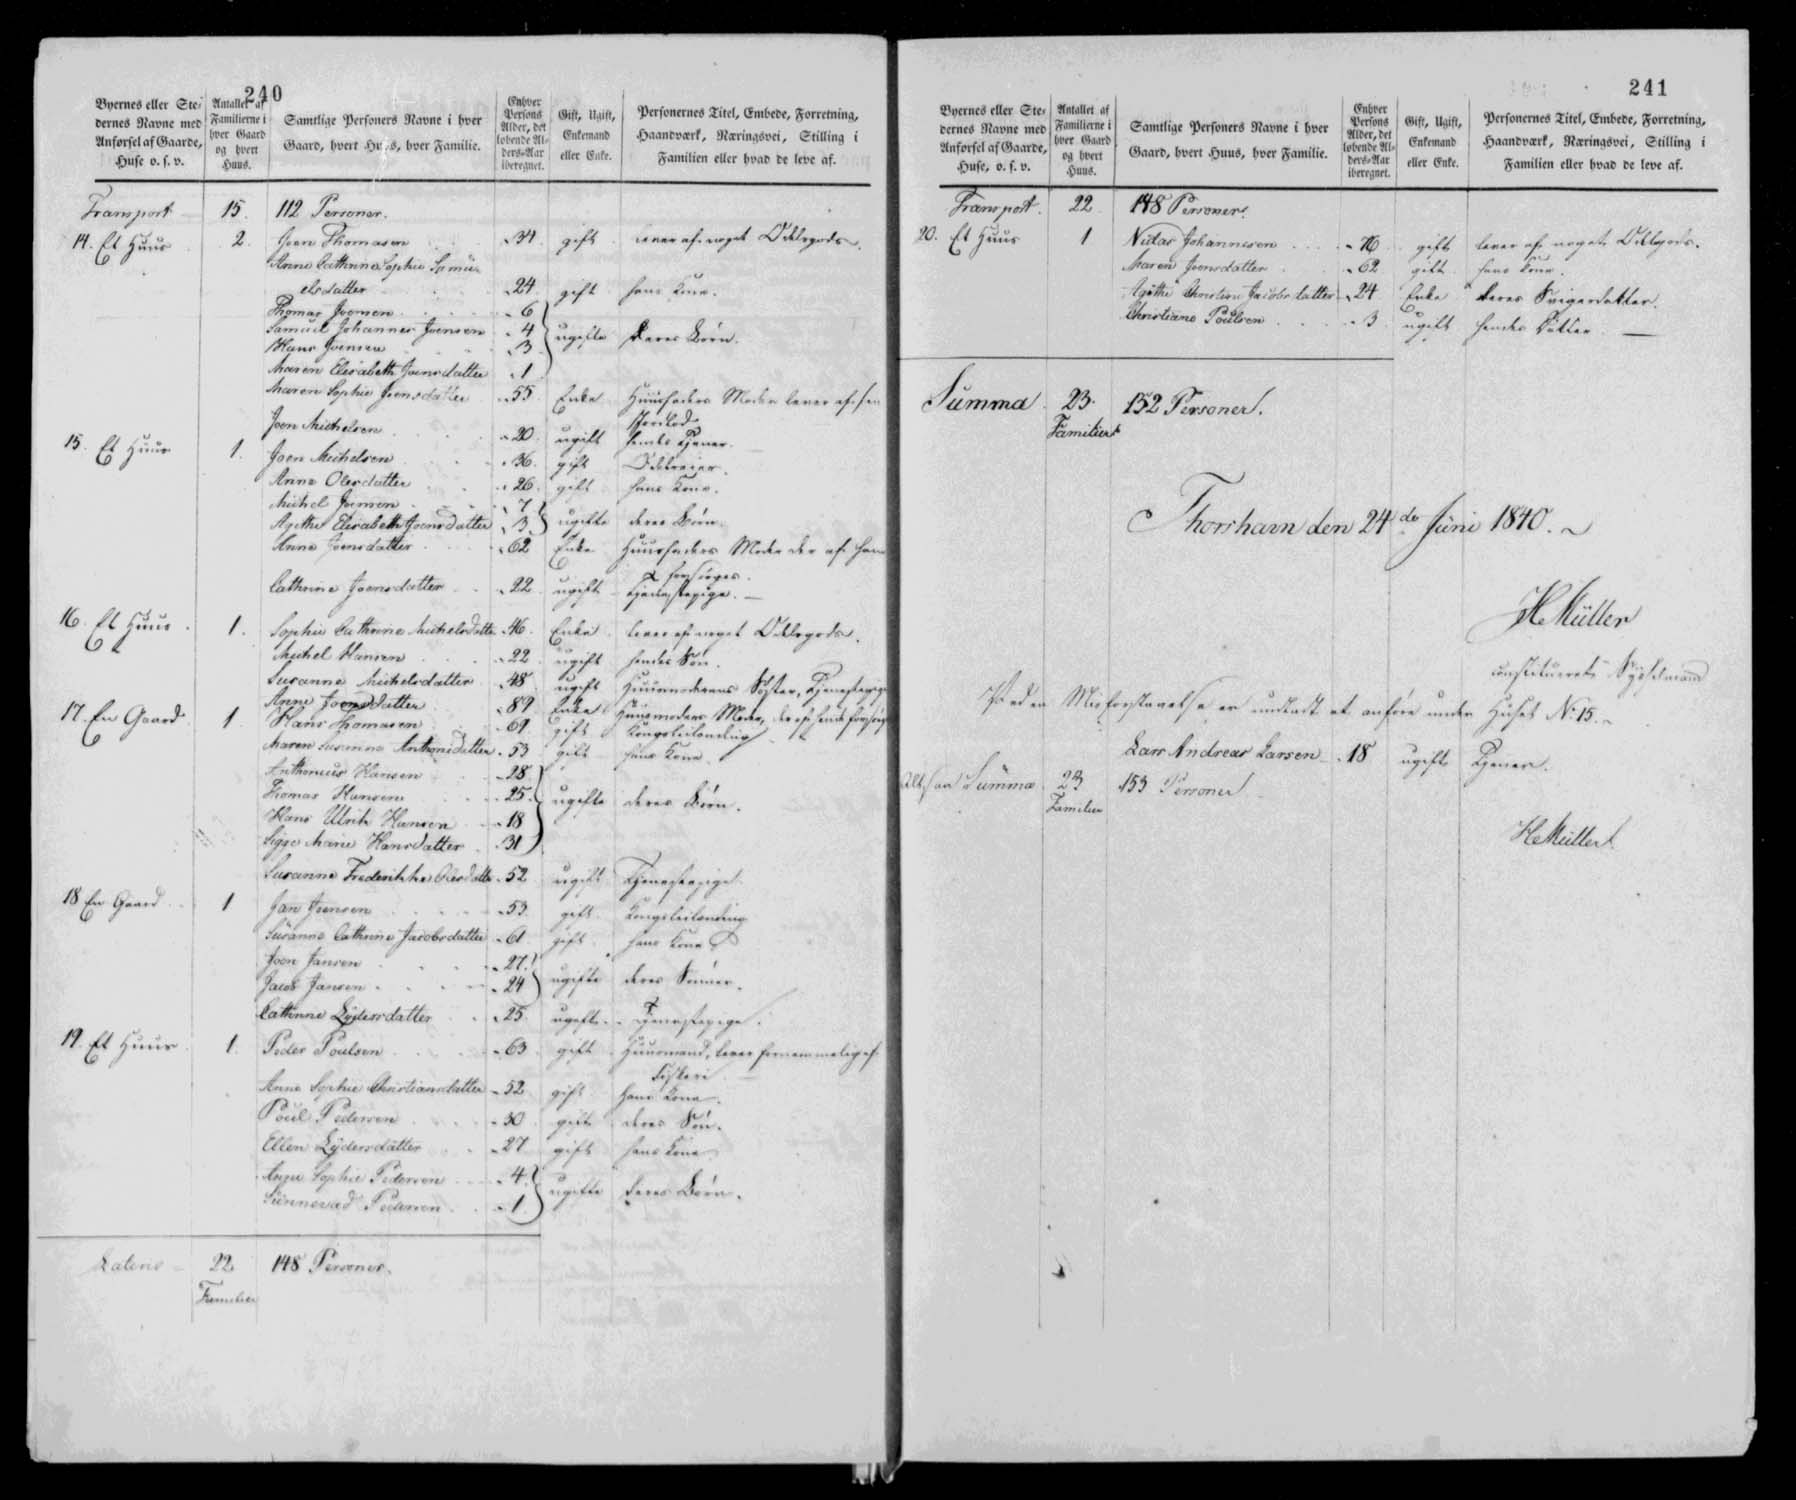 240
Byernes eller Ste-
dernes Navne med
Anførsel af Gaarde,
Huse o. s. v.
Antallet af
Familierne i
hver Gaard
og hvert
Huus.
Samtlige Personers Navne i hver
Gaard, hvert Huus, hver Familie.
Enhver
Persons
Alder, det
løbende Al-
ders-Aar
iberegnet.
Gift, Ugift,
Enkemand
eller Enke.
Personernes Titel, Embede, Forretning,
Haandværk, Næringsvei, Stilling i
Familien eller hvad de leve af.
Transport 15. 112 Personer.
14. Et Huus 2. Joen Thomasen 34. gift lever af noget Odelsgods.
Anne Cathrine Sophie Samu-
elsdatter 24. gift hans Kone.
Thomas Joensen 6
Samuel Johannes Joensen 4 ugifte deres Børn.
Hans Joensen 3
Maren Elisabeth Joensdatter 1
Maren Sophie Joensdatter 55 Enke Huusfaders Moder lever af sin
Jordlod
Joen Michelsen 20 ugift hendes Tjener.
15. Et Huus 1. Joen Michelsen 36. gift Odelseier.
Anne Olesdatter 26. gift hans Kone.
Michel Joensen 7
Agethe Elisabeth Joensdatter 3 ugifte deres Børn.
Anne Joensdatter 62 Enke Huusfaders Moder der af ham
forsørges.
Cathrine Joensdatter 22 ugift Tjenestepige.
16. Et Huus 1. Sophie Cathrine Michelsdatter 46. Enke lever af noget Odelsgods.
Michel Hansen 22 ugift hendes Søn.
Susanne Michelsdatter 48 ugift Huusmoderens Søster, Tjenestepige
Anne Joensdatter 89 Enke Huusmoders Moder, der af hende forsørges
17. En Gaard 1. Hans Thomasen 69 gift Kongsleilænding
Maren Susanna Anthonisdatter 53 gift hans Kone.
Anthonius Hansen 28
Thomas Hansen 25. ugifte deres Børn.
Hans Ulrik Hansen 18
Sigge Marie Hansdatter 31
Susanne Frederikke Olesdatter 52 ugift Tjenestepige.
18 En Gaard 1 Jan Joensen 53. gift Kongsleilænding
Susanne Cathrine Jacobsdatter 61 gift hans Kone
Joen Jansen 27.
Jacob Jansen 24 ugifte deres Sønner.
Cathrine Lydersdatter 25 ugift Tjenestepige.
19. Et Huus 1. Peder Poulsen 63 gift Huusmand, lever fornemmelig af
Fiskeri
Anne Sophie Christiansdatter 52 gift hans Kone.
Poul Pedersen 30 gift deres Søn.
Ellen Lydersdatter 27 gift hans Kone
Anne Sophie Pedersen 4 ugifte deres Børn.
Sünnevad Pedersen 1
Lateris 22 148 Personer.
Familier
241
Byernes eller Ste-
dernes Navne med
Anførsel af Gaarde,
Huse, o. s. v.
Antallet af
Familierne i
hver Gaard
og hvert
Huus.
Samtlige Personers Navne i hver
Gaard, hvert Huus, hver Familie.
Enhver
Persons
Alder, det
løbende Al-
ders-Aar
iberegnet.
Gift, Ugift,
Enkemand
eller Enke.
Personernes Titel, Embede, Forretning,
Haandværk, Næringsvei, Stilling i
Familien eller hvad de leve af.
Transport. 22 148 Personer.
20. Et Huus 1 Niclas Johannesen 76 gift lever af noget Odelsgods.
Maren Joensdatter 62 gift hans Kone.
Agathe Christine Jacobsdatter 24 Enke deres Svigerdatter
Christiane Poulsen 3 ugift hendes Datter
Summa 23. 152 Personer.
Familier
Thorshavn den 24de Juni 1840.
HMüller
constitueret Sysselmand
Ved en Misforstaaelse er undladt at anføre under Huset No 15.
Lars Andreas Larsen 18 ugift Tjener.
Altsaa Summa 23 153 Personer
Familier
HMüller